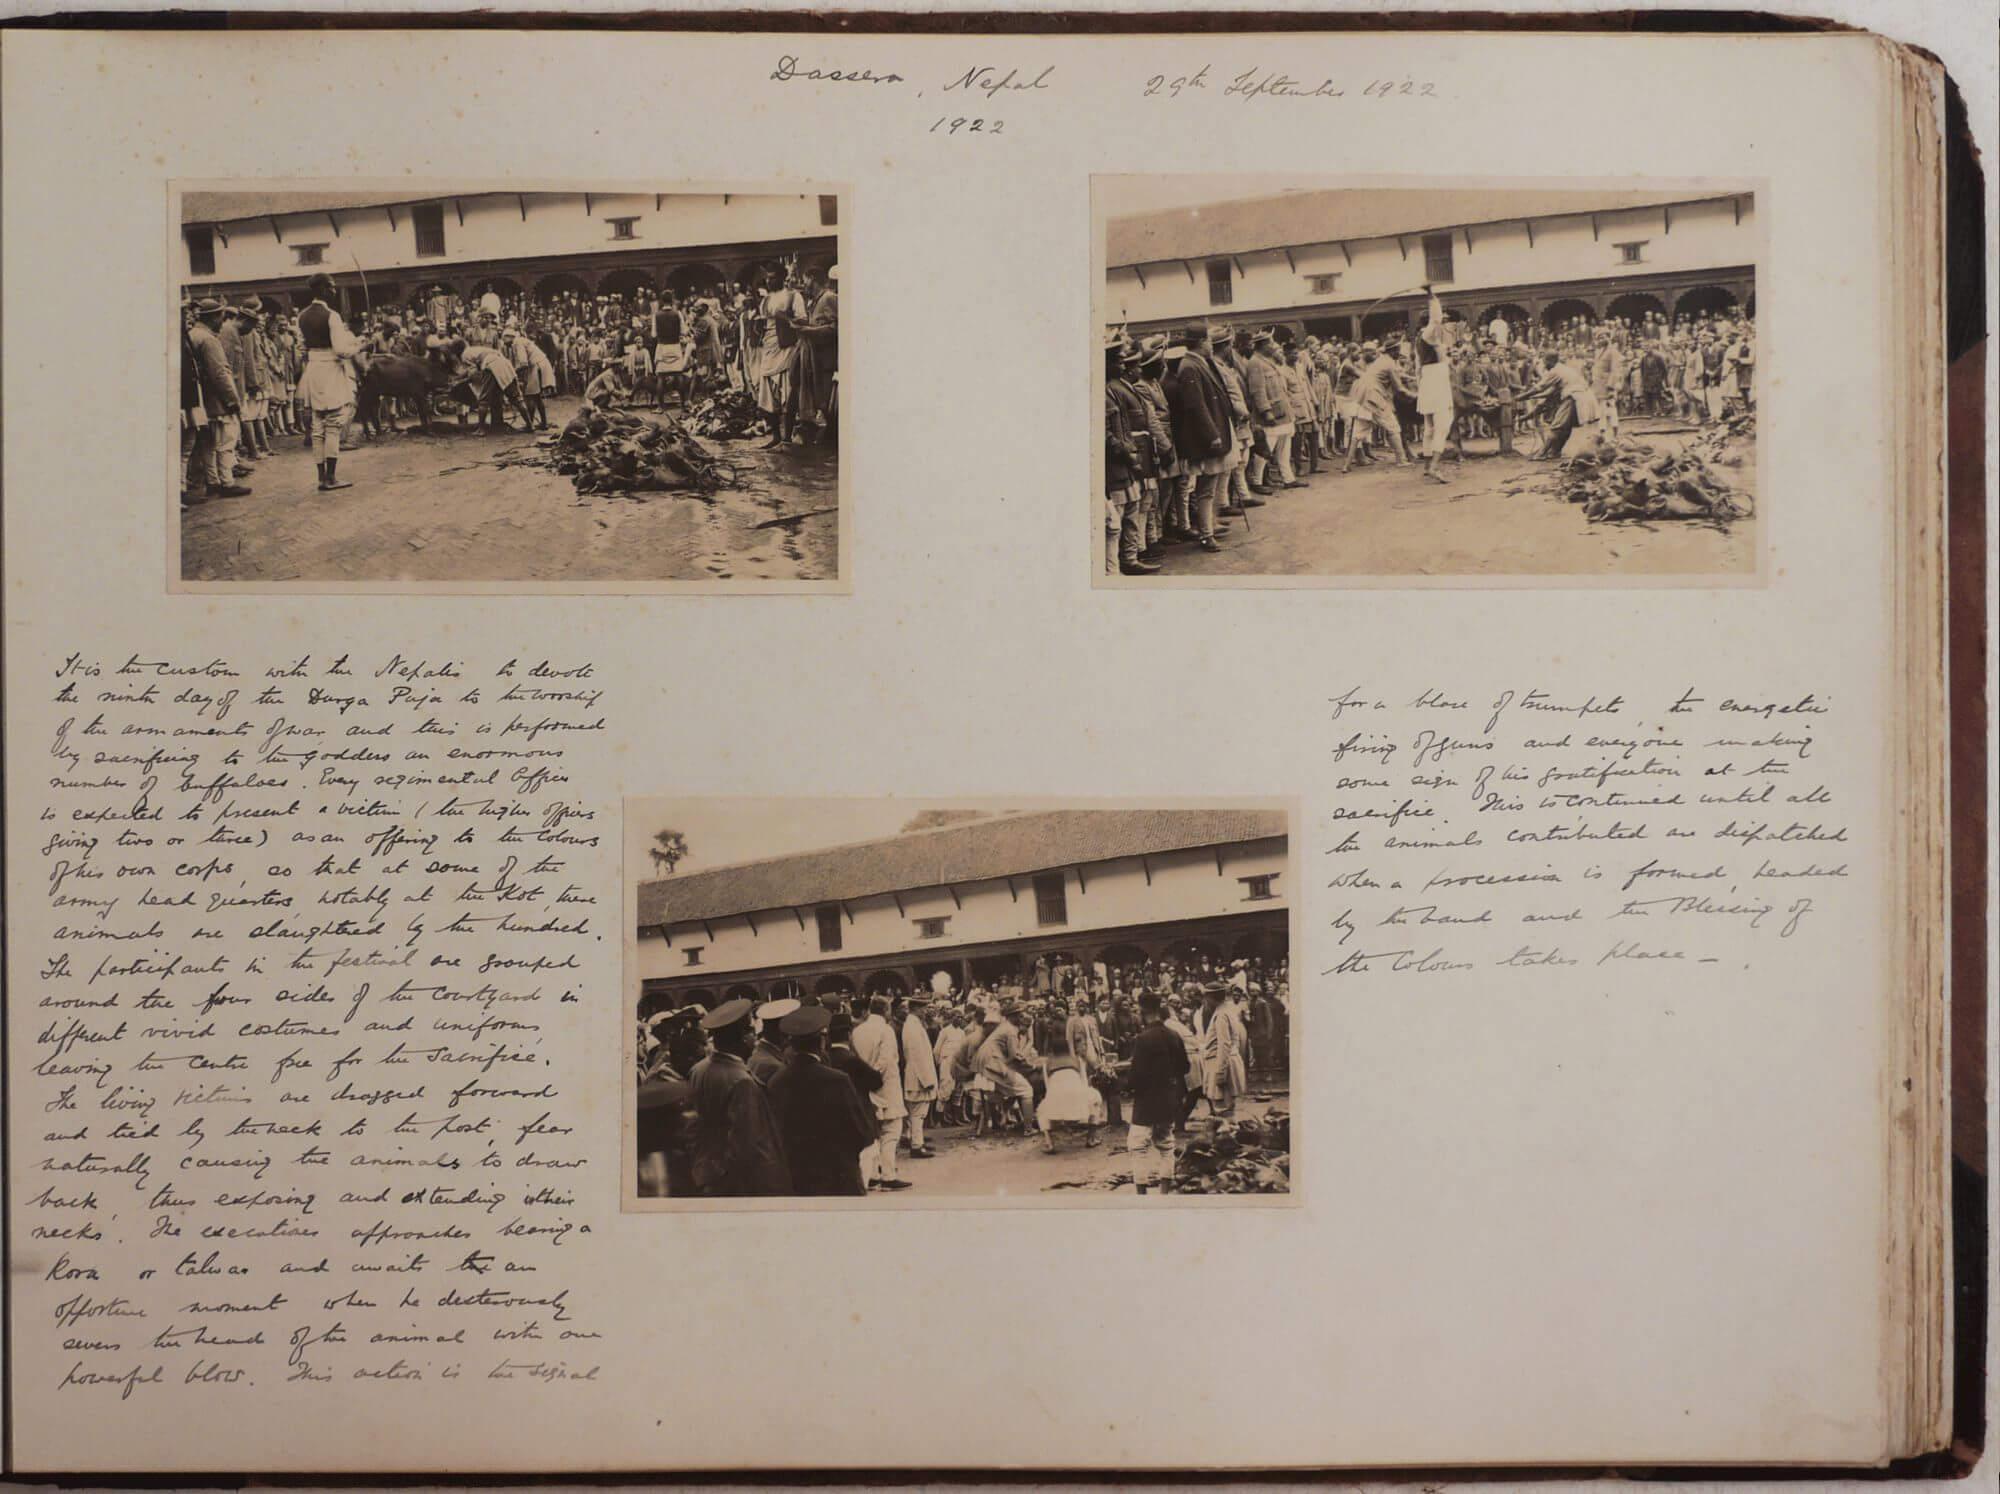 Dassera, Nepal 29th September 1922
1922
It is the custom with the Nepalis to devote
the ninth day of the Durga Puja to the worship
of the armaments of war and this is performed
by sacrificing to the goddess an enormous
number of buffaloes. Every regimental Officer
is expected to present a victim (the higher officers
giving two or three) as an offering to the Colours
of his own corps, so that at some of the
army head quarters, notably at the Kot, these
animals are slaughtered by the hundred.
The participants in the festival are grouped
around the four sides of the Courtyard in
different vivid costumes and uniforms,
leaving the centre free for the Sacrifice.
The living victims are dragged forward
and tied by the neck to the post, fear
naturally causing the animals to draw
back, thus exposing and extending their
necks. The executioner approaches bearing a
Kora or talwar and awaits the an
opportune moment when he dexterously
severs the head of the animal with one
powerful blow. This action is the signal
for a blare of trumpets, the energetic
firing of guns and everyone making
some sign of his gratification at the
sacrifice. This is continued until all
the animals contributed are dispatched
when a procession is formed, headed
by the band and the Blessing of
the Colours takes place —.